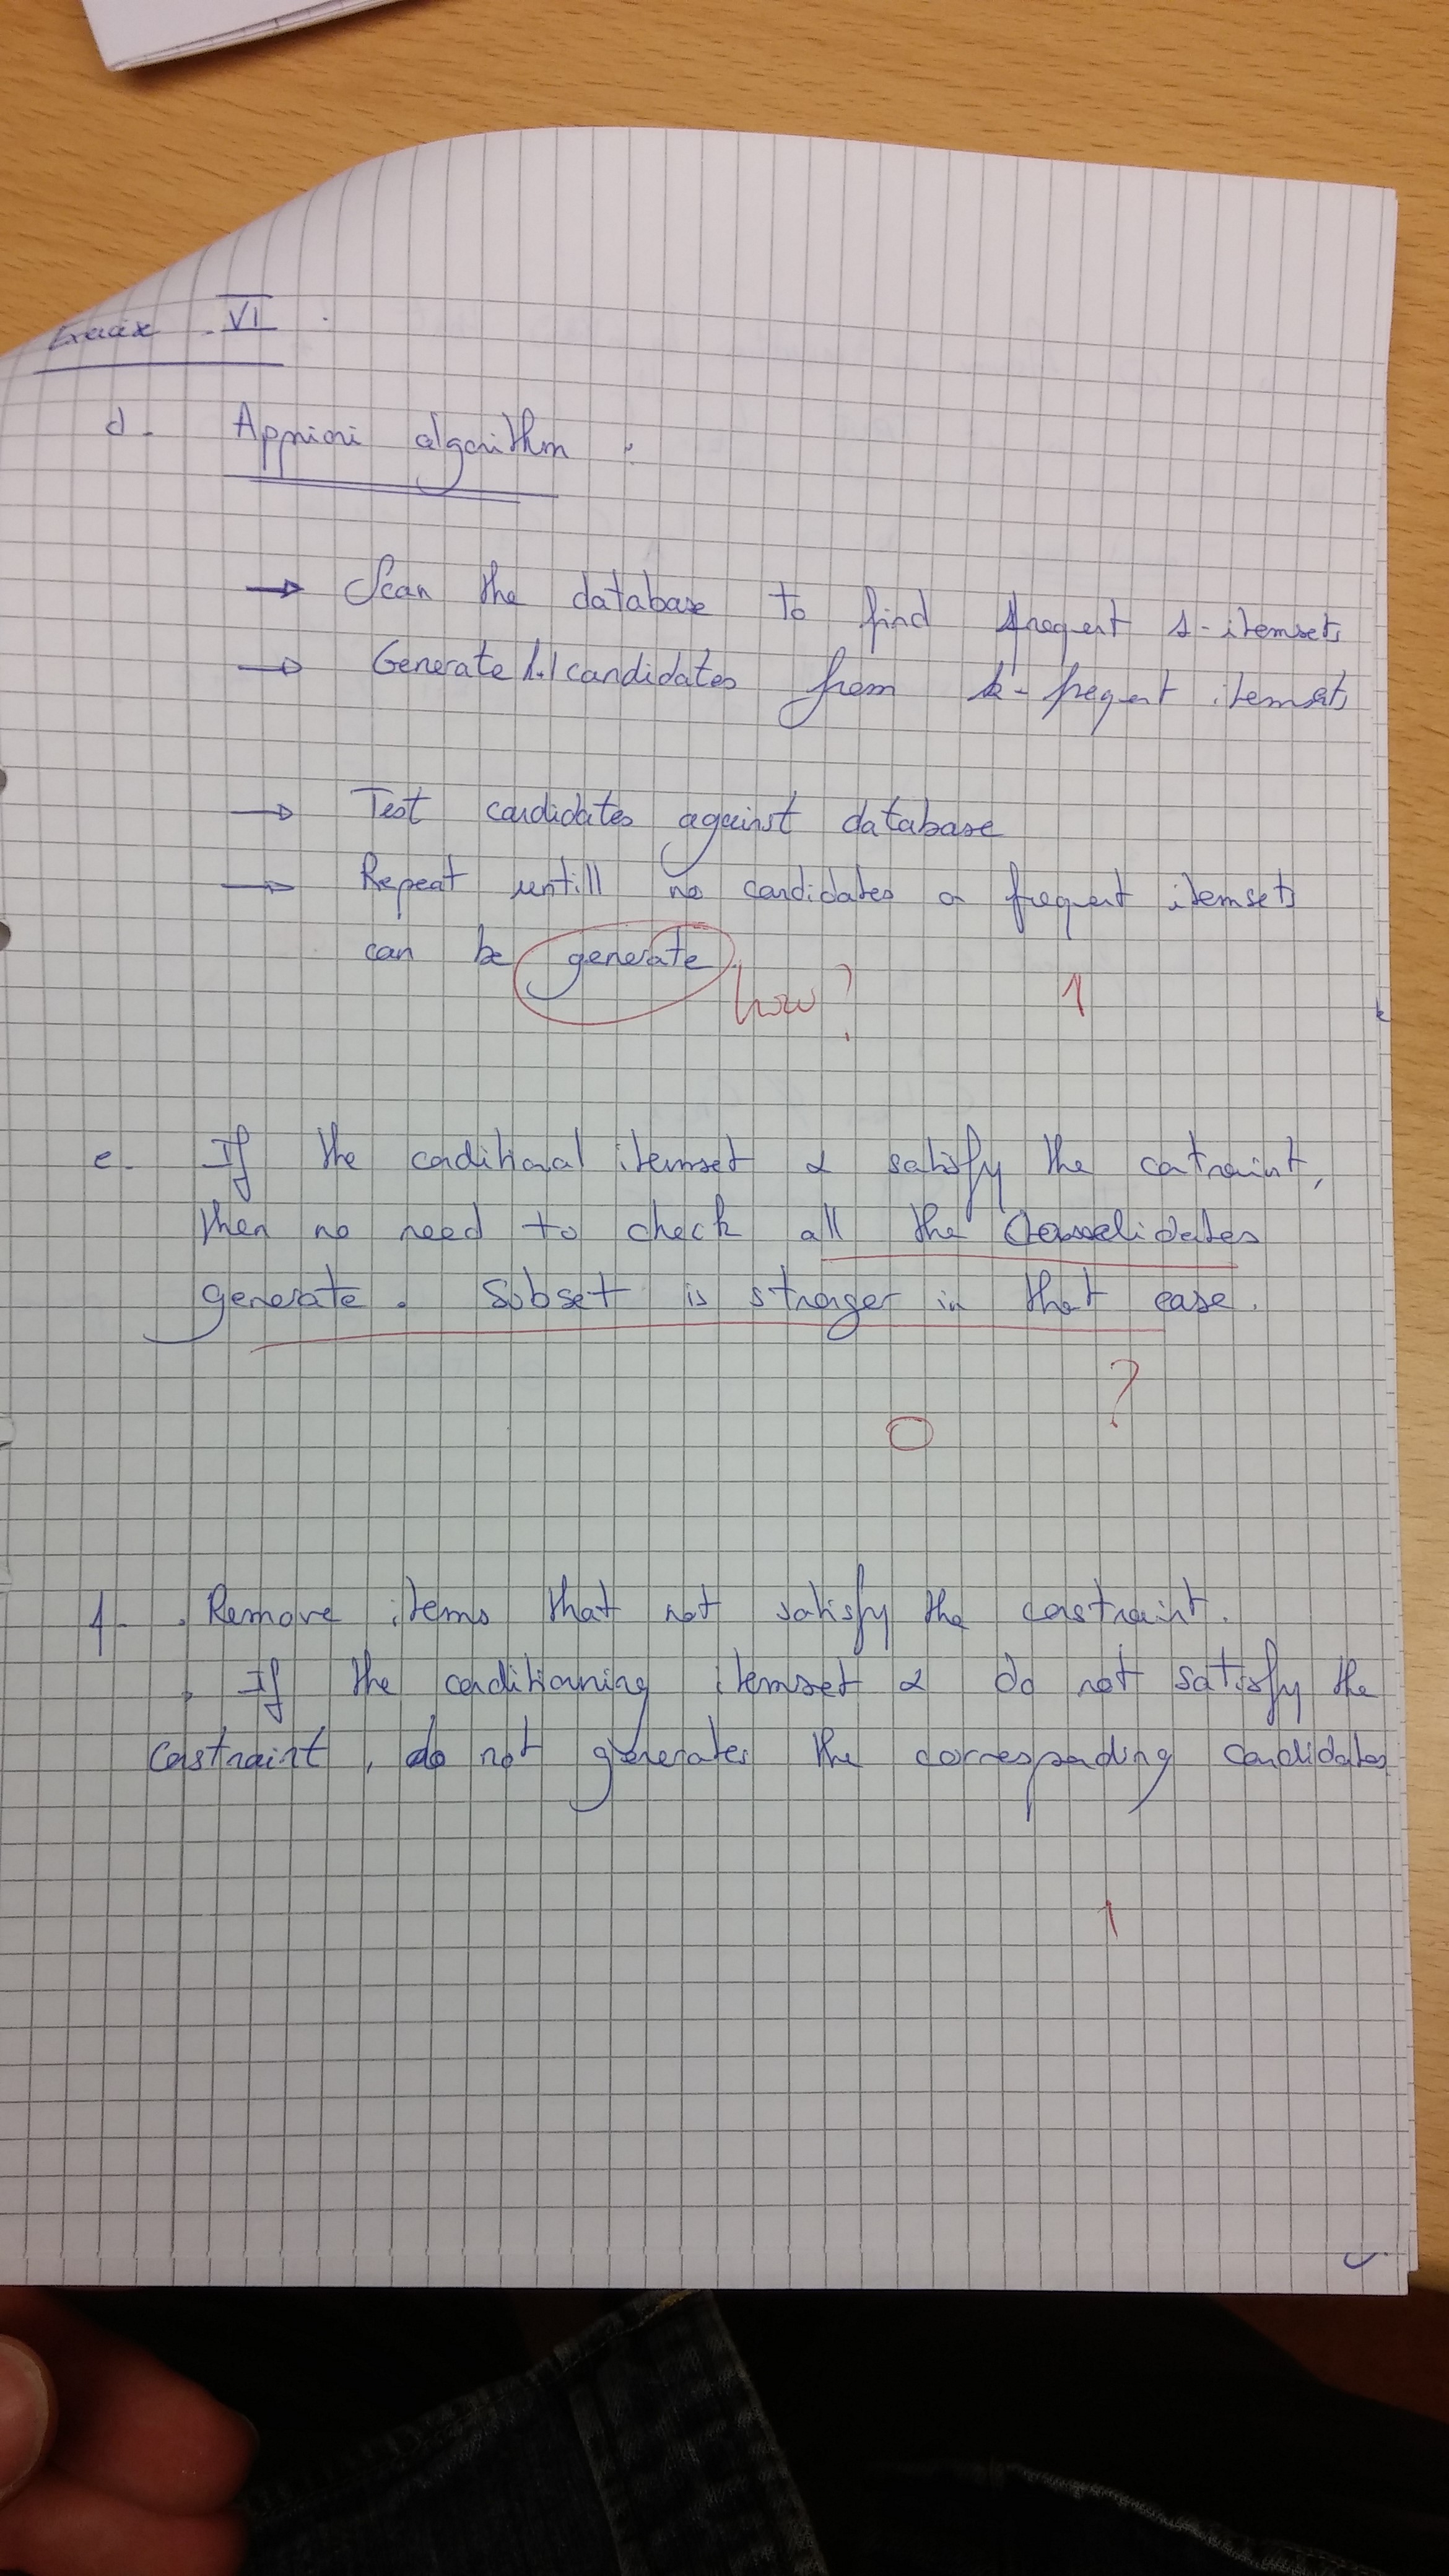 Exercice VI
d- Appriori algorithm :
→ Scan the database to find frequent 1-itemsets
→ Generate candidates from k-frequent itemsets
→ Test candidates against database
→ Repeat untill no candidates or frequent itemsets
can be generate.
how?
1
e- If the conditional itemset α satisfy the catraint,
then no need to check all the candidates
generate. Subset is stronger in that case.
?
0
f- . Remove items that not satisfy the constraint.
. If the conditioning itemset α do not satisfy the
constraint, do not generates the corresponding candidates.
1